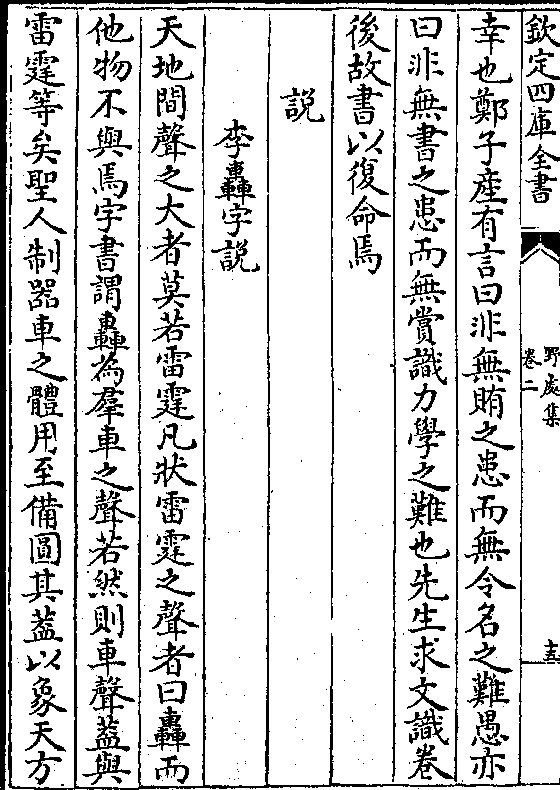 欽定四庫全書
野處集
卷二
十五
幸也鄭子產有言曰非無賄之患而無令名之難愚亦
曰非無書之患而無賞識力學之難也先生求文識卷
後故書以復命焉
說
李轟字說
天地間聲之大者莫若雷霆凡狀雷霆之聲者曰轟而
他物不與焉字書謂轟為羣車之聲若然則車聲葢與
雷霆等矣聖人制器車之體用至備圓其葢以象天方